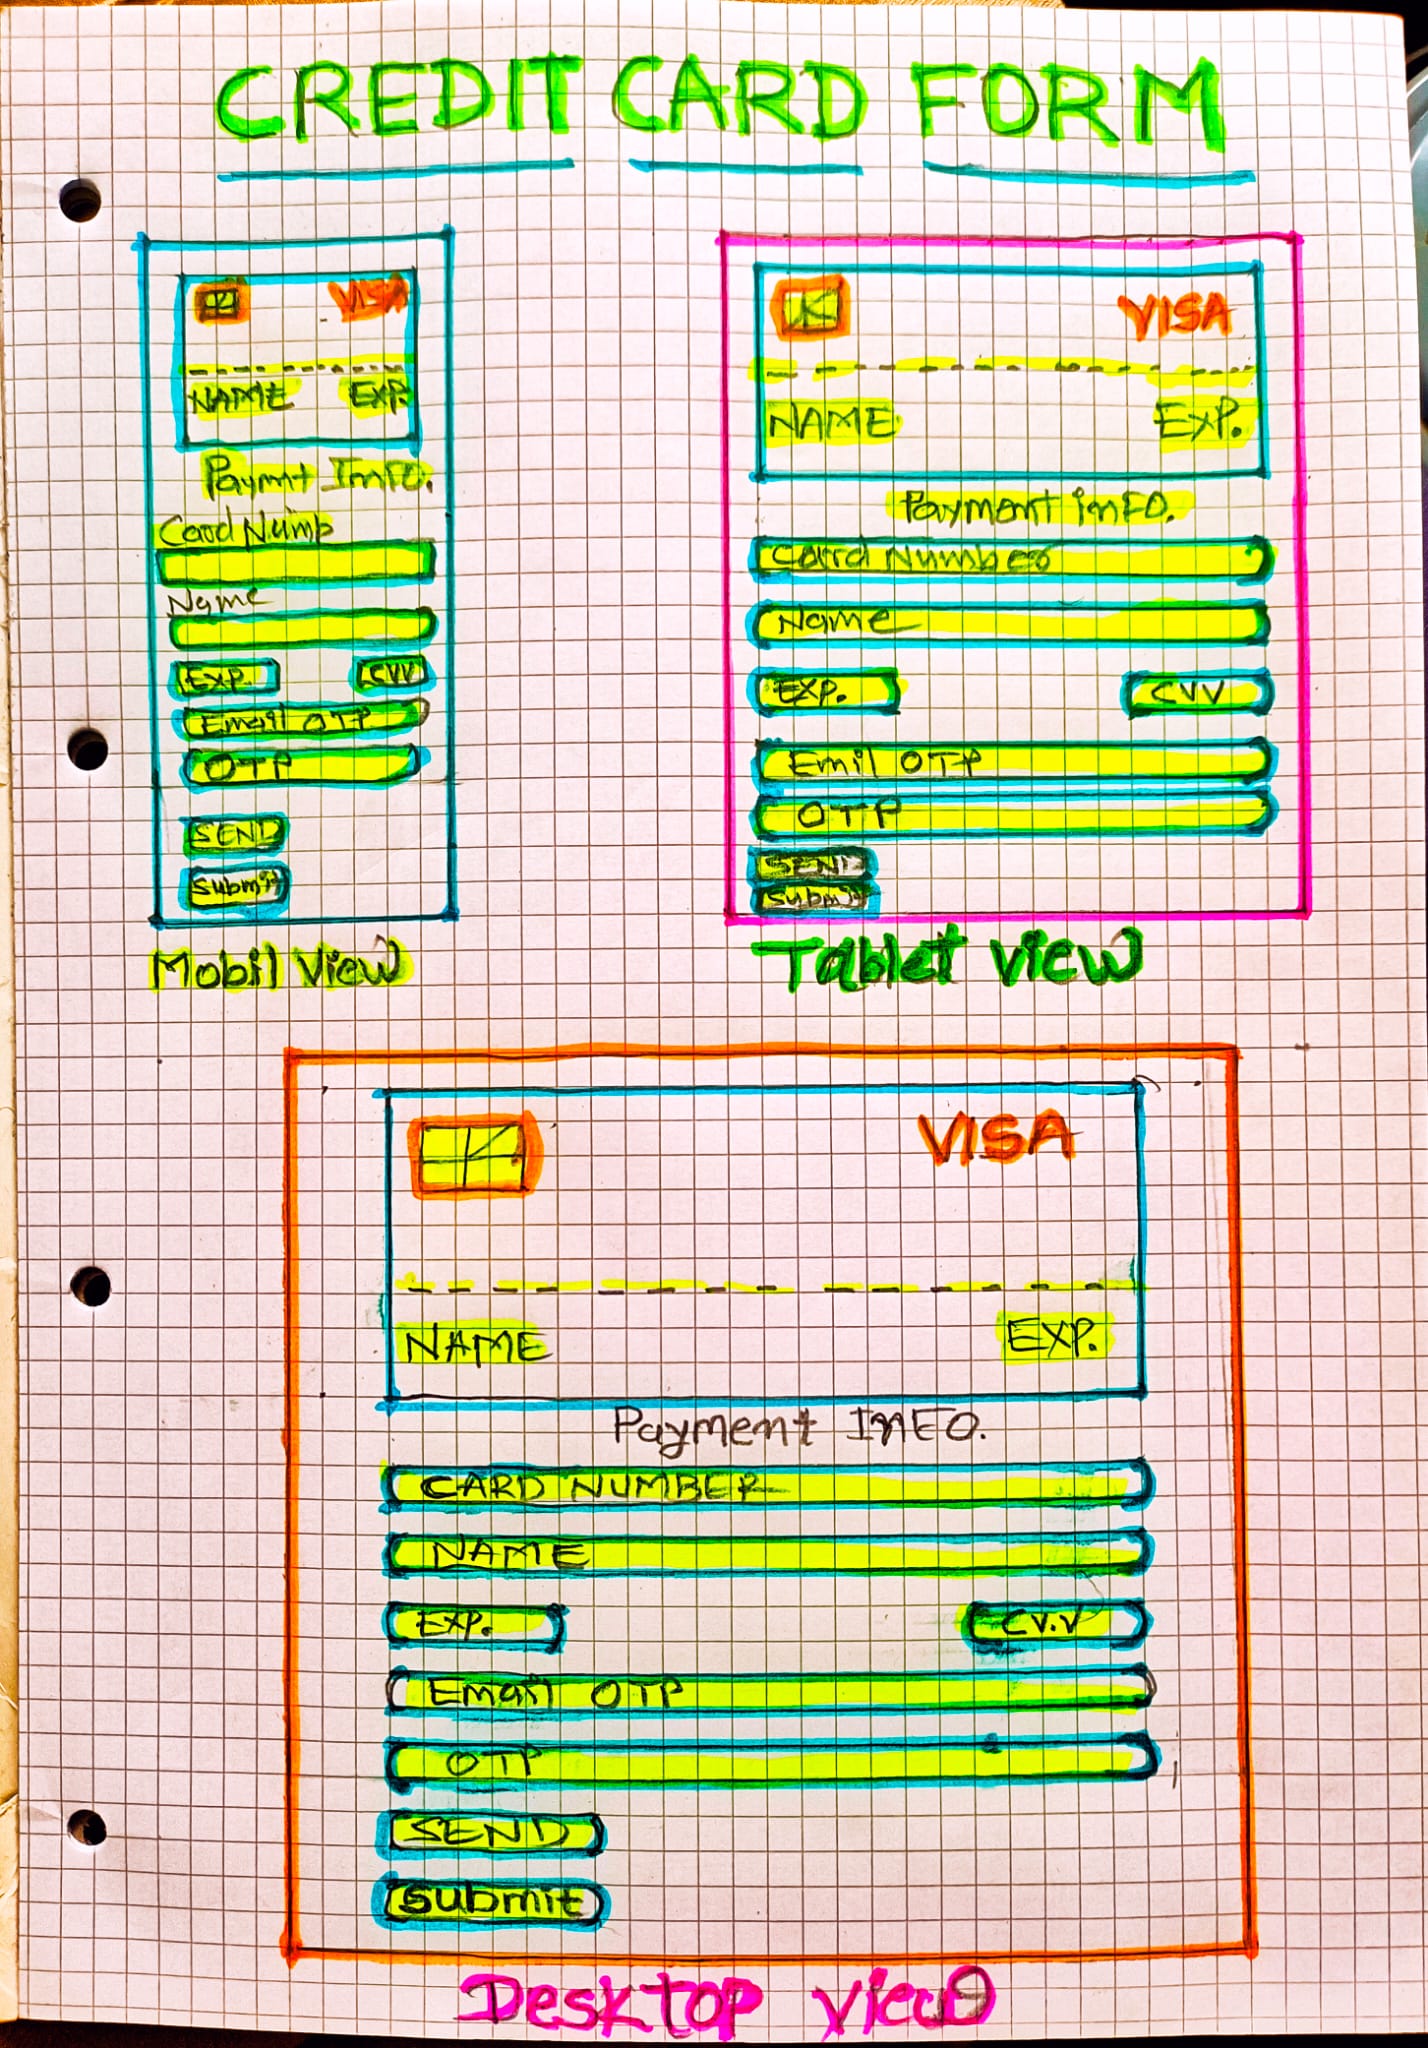 CREDIT CARD FORM
VISA
NAME EXP.
Paymnt InFO.
Card Numb
Name
EXP. CVV
Email OTP
OTP
SEND
Submit
Mobil View
VISA
NAME EXP.
Payment inFO.
Card Number
Name
EXP. CVV
Emil OTP
OTP
SEND
Submit
Tablet View
VISA
NAME EXP.
Payment InFO.
CARD NUMBER
NAME
EXP. CV.V
Email OTP
OTP
SEND
Submit
Desktop View